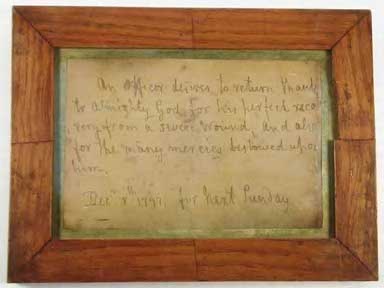 An Officer desires to return thanks
to Almighty God, for his perfect reco
very from a severe wound, and also
for the many mercies bestowed upon
him.
Decr 8th 1797, for next Sunday